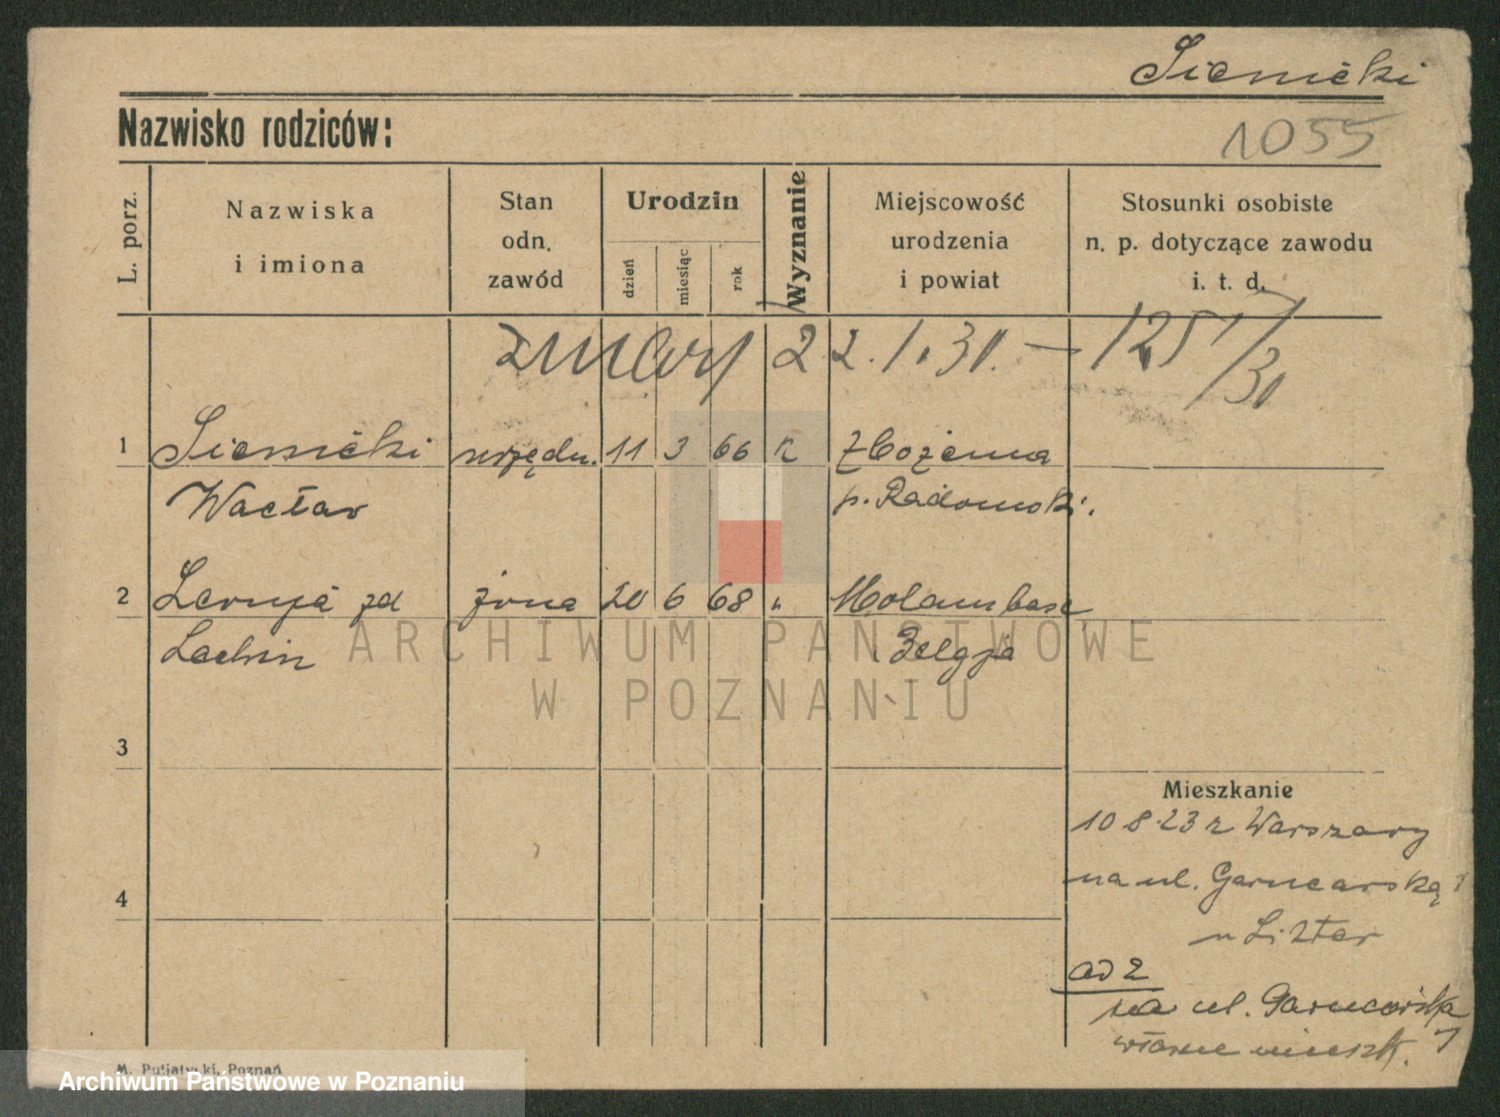 Sienicki
Nazwisko rodziców:
1055
L. porz.
Nazwiska
i imiona
Stan
odn.
zawód
Urodzin
dzień
miesiąc
rok
Wyznanie
Miejscowość
urodzenia
i powiat
Stosunki osobiste
n. p. dotyczące zawodu
i. t. d.
zmarł 22.1.30. — 125/30
1 Sienicki urzędn. 11 3 66 k Zbożenna
Wacław p. Radomski.
2 zd żona 20 6 68 "
Lachin Belgja
ARCHIWUM PAŃSTWOWE
W POZNANIU
3
Mieszkanie
10 8 23 z Warszawy
na ul. Garncarską
4
u
ad 2
na ul. Garncarską 7
własne mieszk.
M. Putiatycki, Poznań
Archiwum Państwowe w Poznaniu